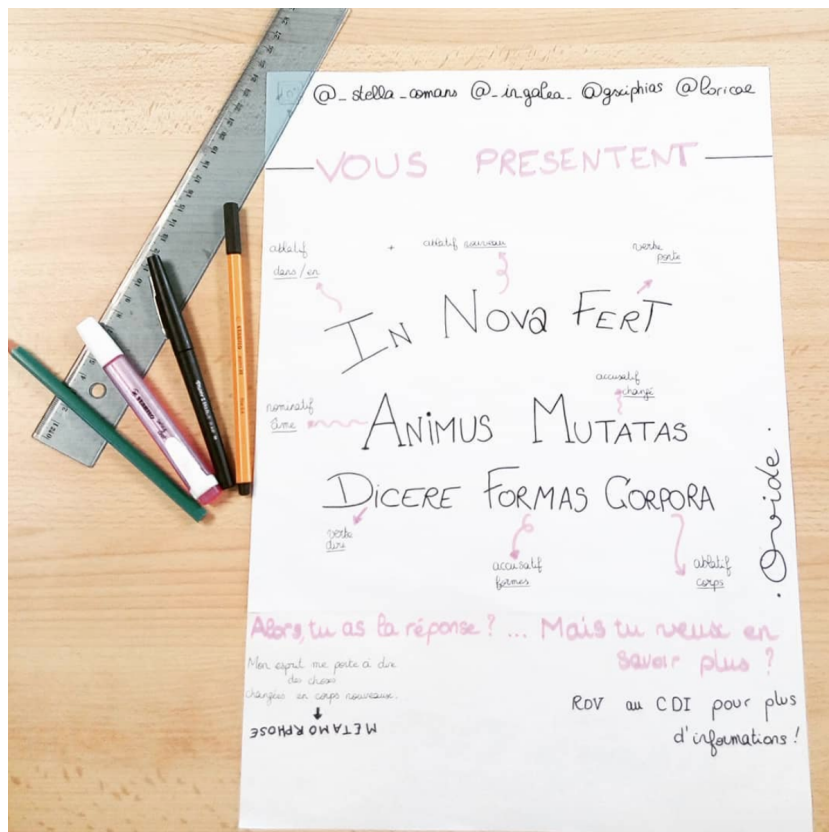 @_stella_comans @_in_galea_ @gxiphias @loricae
VOUS PRESENTENT
ablatif + ablatif nouveaux verbe
dans/en porte
IN NOVA FERT
accusatif
changé
nominatif
âme
ANIMUS MUTATAS
DICERE FORMAS CORPORA
verbe
dire
accusatif
formes
ablatif
corps
.Ovide.
Alors, tu as la réponse ? ... Mais tu veux en
savoir plus ?
Mon esprit me porte à dire
des choses
changées en corps nouveaux.
METAMORPHOSE
RDV au CDI pour plus
d'informations !